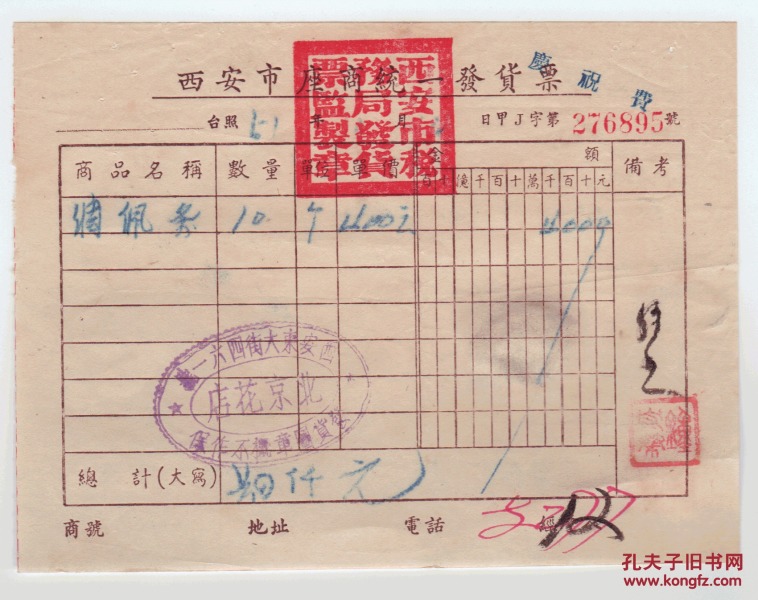 西安市座商統一發貨票
慶祝費
西安市稅務局發貨票監製章
台照 年 月 日 甲J字第276895號
商品名稱 數量 單位 單價 金額 備考
百十億千百十萬千百十元
綢佩条 10 个 400元 4000
西安東大街四六一號
北京花店
發貨圖章概不作保
總計(大寫) 四仟元
商號 地址 電話 經
孔夫子旧书网
www.kongfz.com